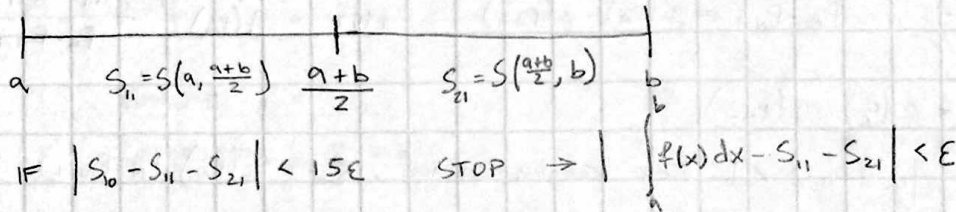 a S₁₁ = S(a, (a+b)/2) (a+b)/2 S₂₁ = S((a+b)/2, b) b
IF |S₁₀ - S₁₁ - S₂₁| < 15ε STOP → |∫ₐᵇ f(x) dx - S₁₁ - S₂₁| < ε